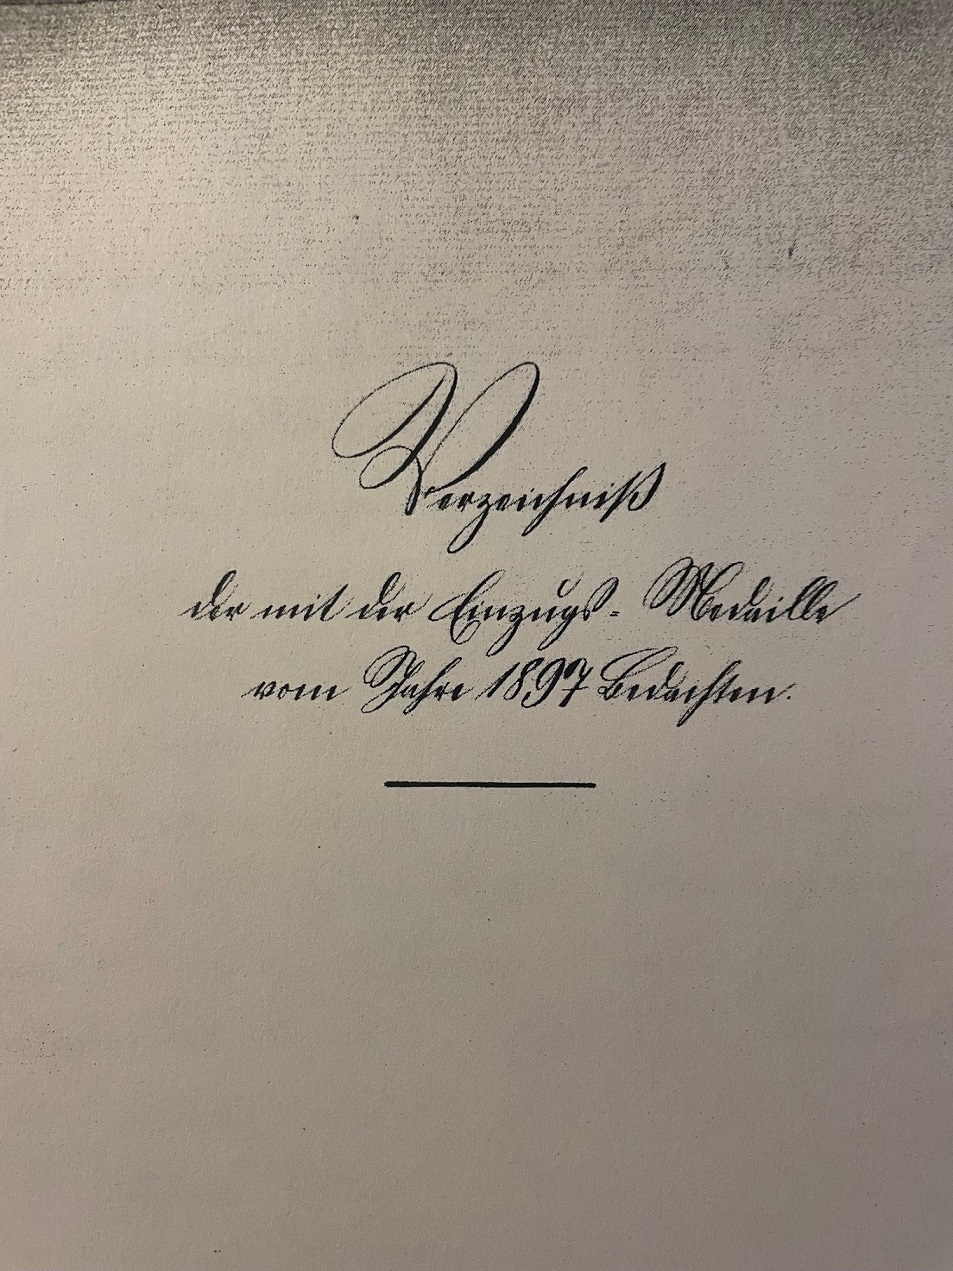 Verzeichniß
der mit der Einzugs-Medaille
vom Jahre 1897 Bedachten.